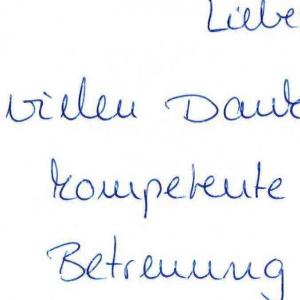 Liebe
vielen Dank
kompetente
Betreuung